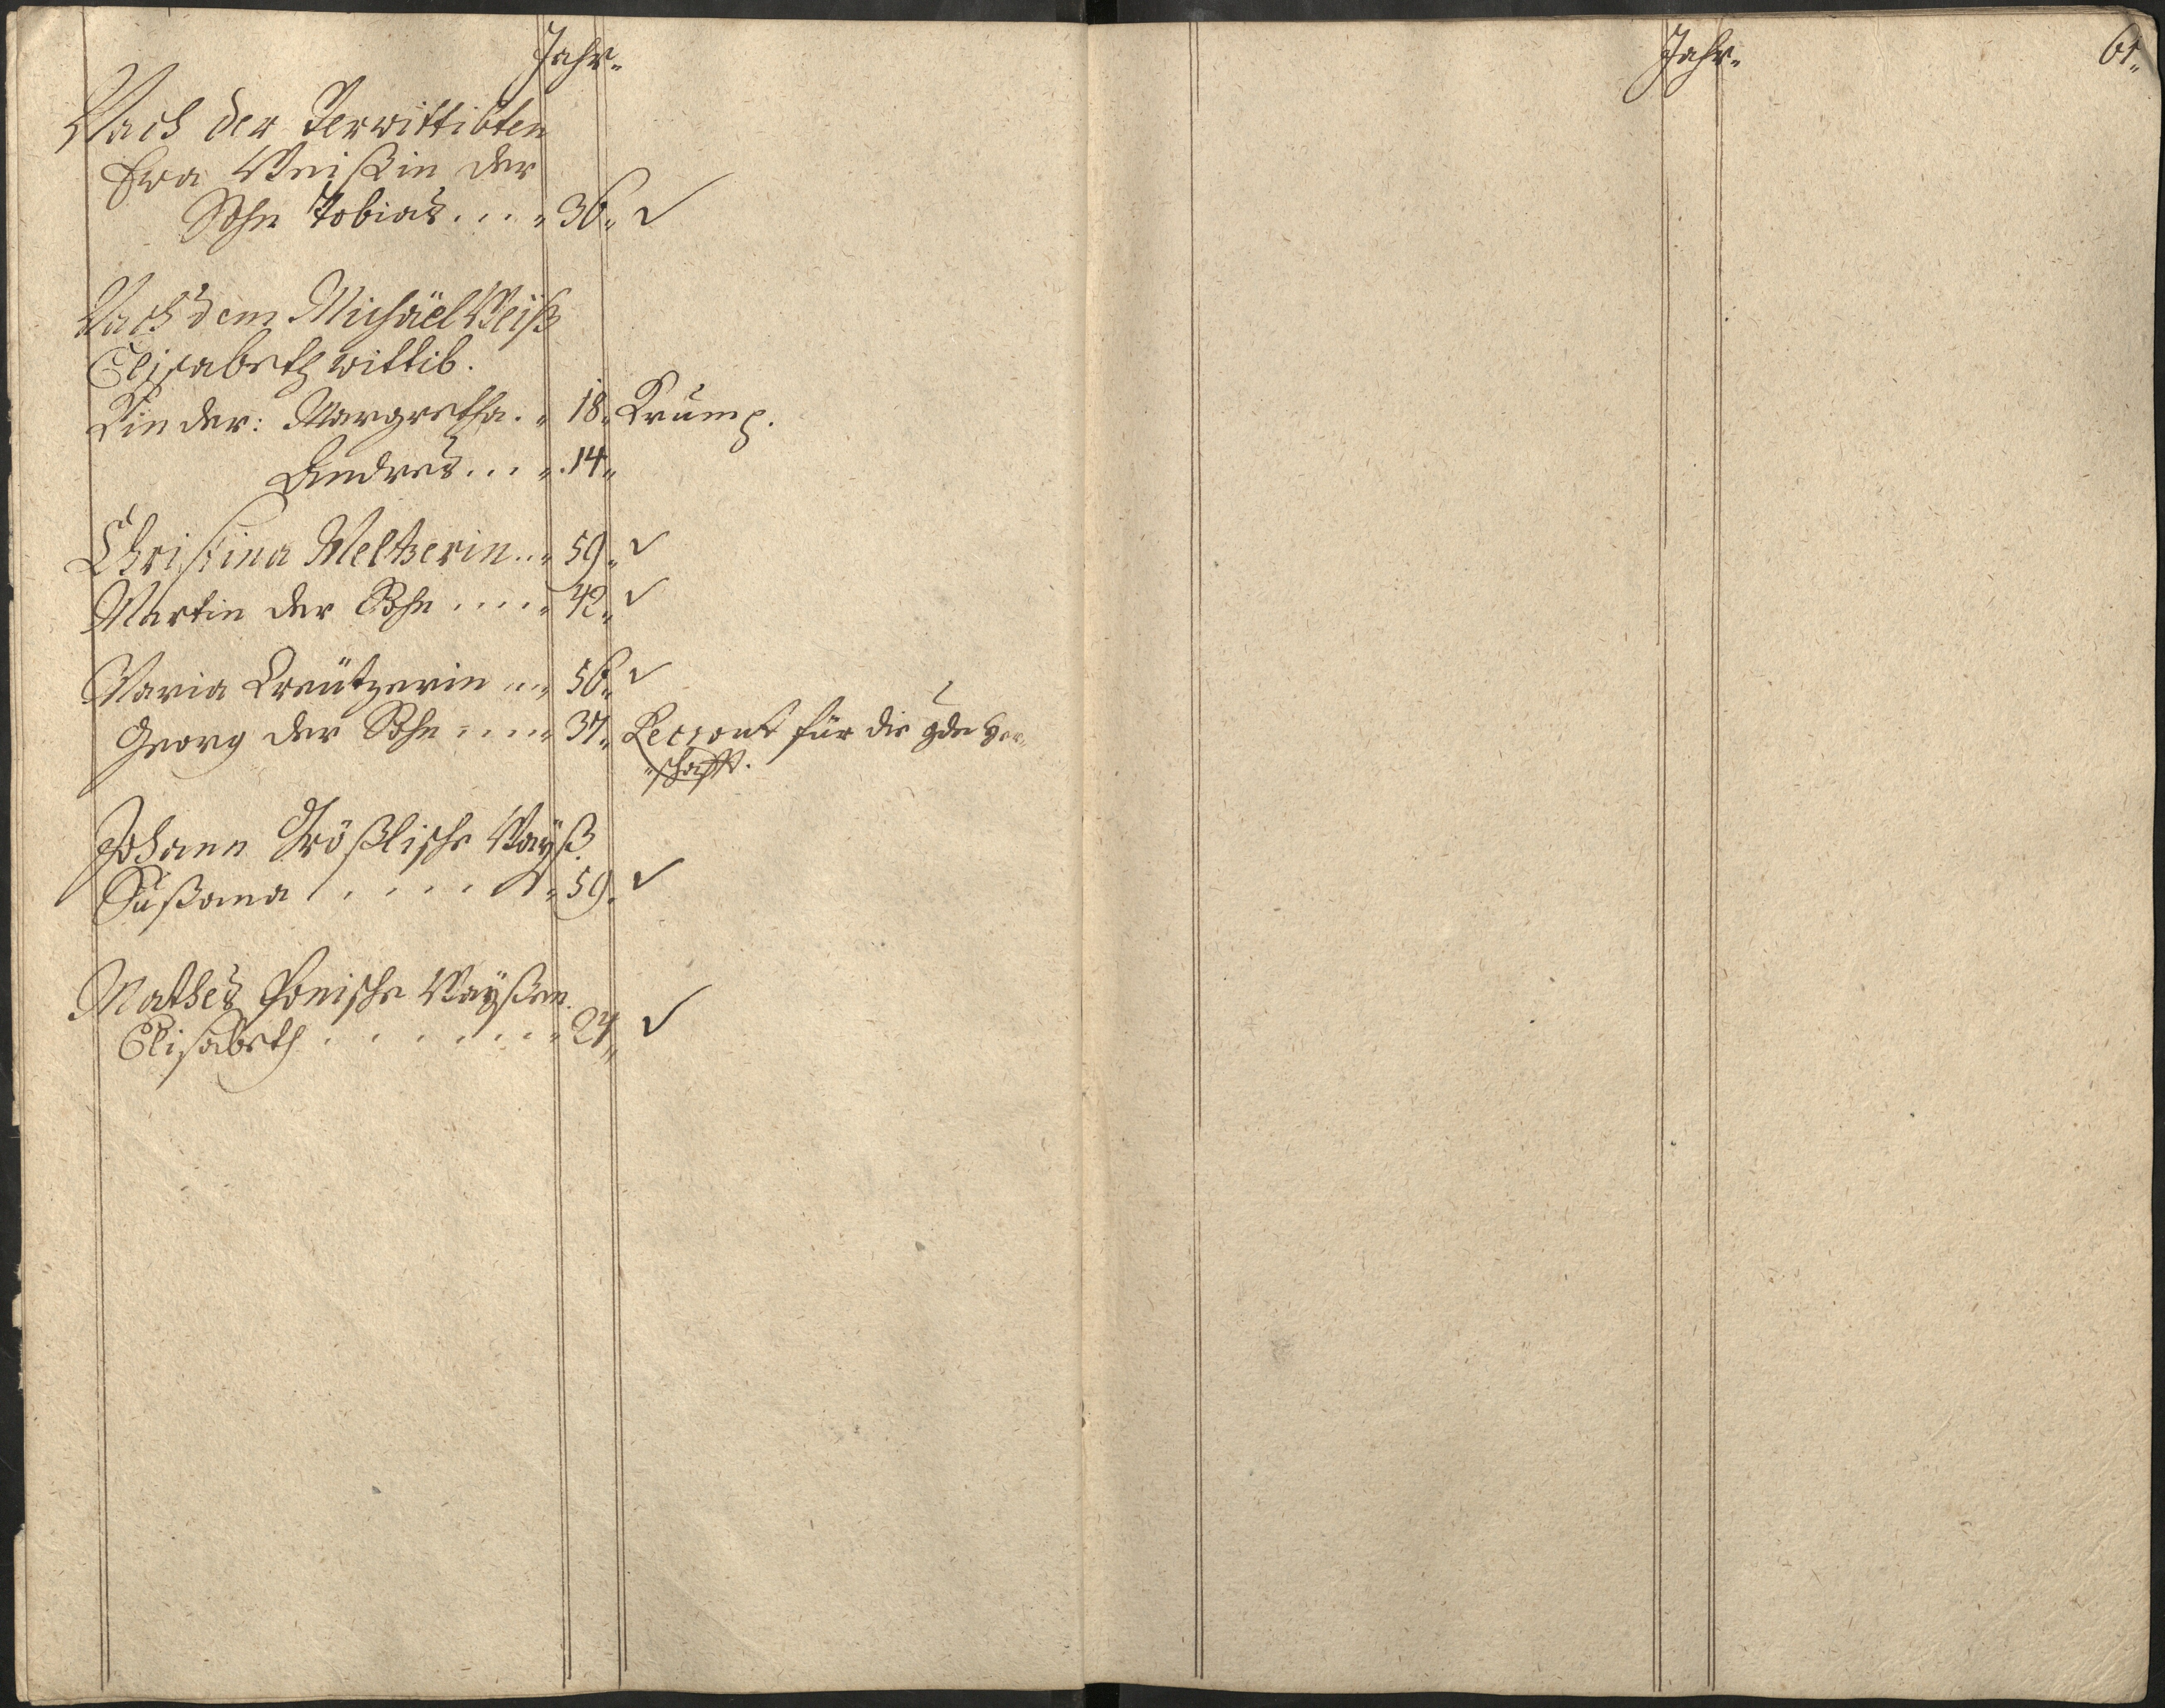 Jahr.
Nach der Verwittibten
Ewa Weißin der
Sohn Tobias.... 36.. ✓
Nach dem Michäel Weiß
Elisabeth wittib.
Kinder: Margretha.. 18.. Krump.
Andres..... 14..
Christina Meltzerin... 59.. ✓
Martin der Sohn..... 42.. ✓
Maria Kreützerin .... 56.. ✓
Georg der Sohn ..... 37.. Recrout für die
schafft.
Johann Größlische Wayß.
Sußana ..... 59. ✓
Mathes Wayßen.
Elisabeth ....... 24.. ✓
Jahr.
61..